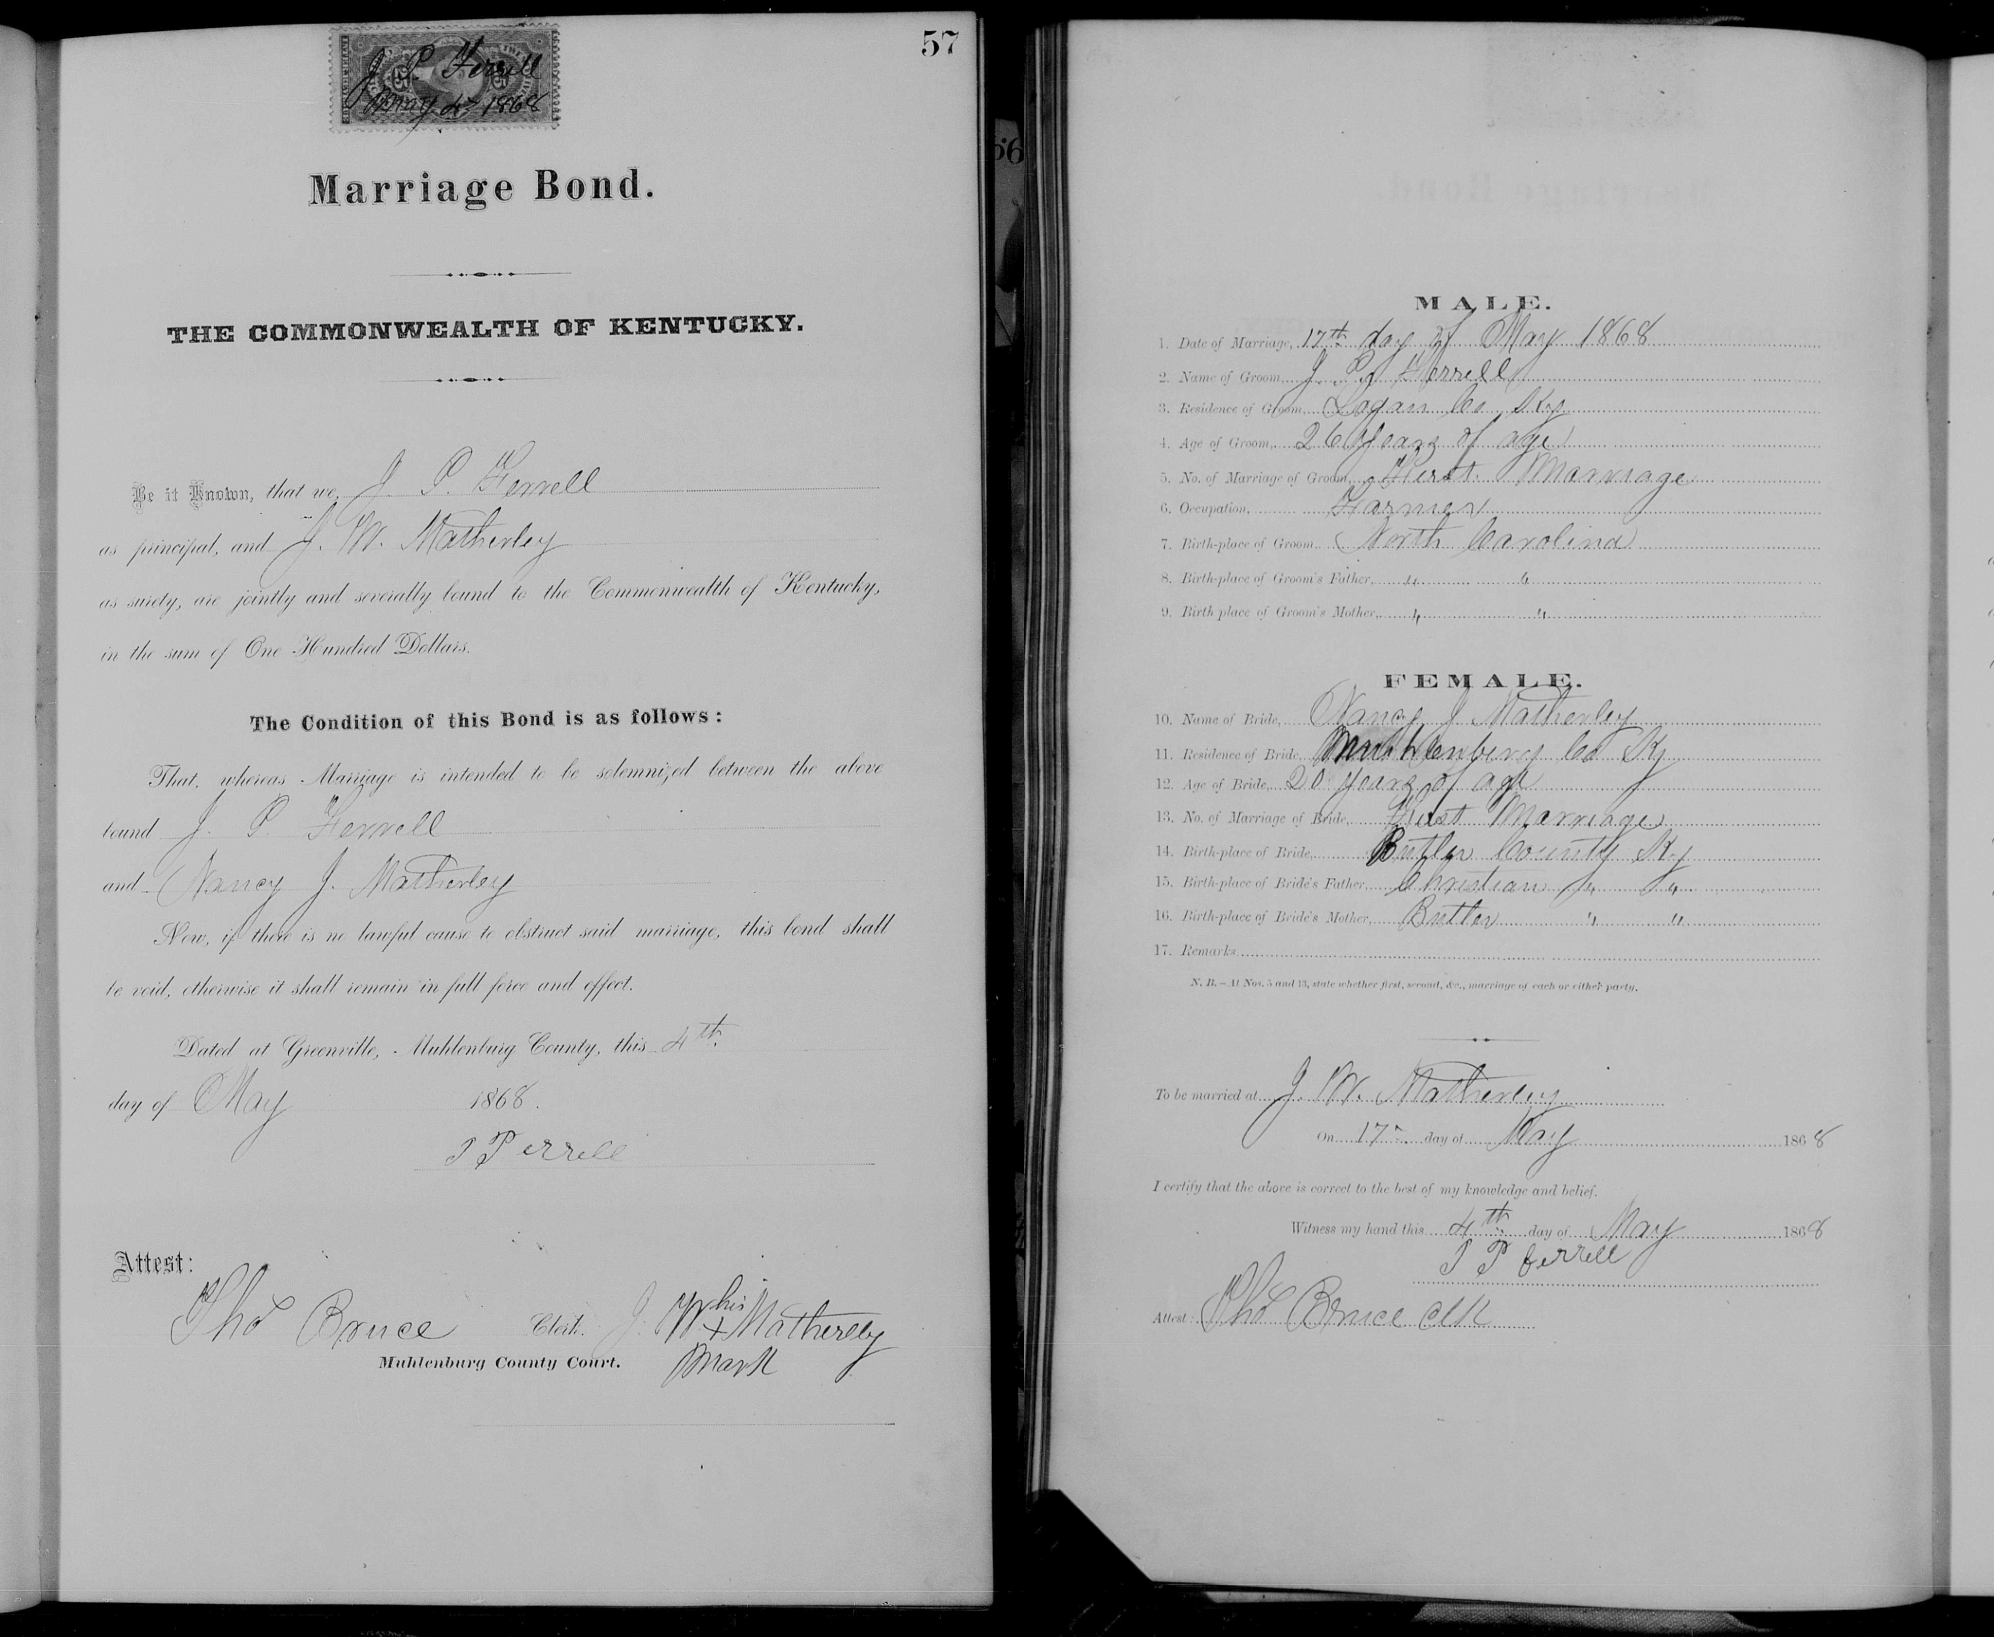 57
J. P. Ferrell
May 4th 1868
Marriage Bond.
THE COMMONWEALTH OF KENTUCKY.
Be it Known, that we, J. P. Ferrell
as principal, and J. W. Matherley
as surety, are jointly and severally bound to the Commonwealth of Kentucky,
in the sum of One Hundred Dollars.
The Condition of this Bond is as follows:
That, whereas Marriage is intended to be solemnized between the above
bound J. P. Ferrell
and Nancy J. Matherley
Now, if there is no lawful cause to obstruct said marriage, this bond shall
be void, otherwise it shall remain in full force and effect.
Dated at Greenville, Muhlenburg County, this 4th
day of May 1868.
J P Ferrell
Attest:
Tho s Bruce Clerk. J. W his x Matherley
Muhlenburg County Court. mark
56
MALE.
1. Date of Marriage, 17th day of May 1868
2. Name of Groom, J. P. Ferrell
3. Residence of Groom, Logan Co. Ky
4. Age of Groom, 26 years of age
5. No. of Marriage of Groom, First Marriage
6. Occupation, Farmer
7. Birth-place of Groom, North Carolina
8. Birth-place of Groom's Father, " "
9. Birth place of Groom's Mother, " "
FEMALE.
10. Name of Bride, Nancy J Matherley
11. Residence of Bride, Muhlenberg Co Ky
12. Age of Bride, 20 years of age
13. No. of Marriage of Bride, First Marriage
14. Birth-place of Bride, Butler County Ky
15. Birth-place of Bride's Father, Christian " "
16. Birth-place of Bride's Mother, Butler " "
17. Remarks
N. B.—At Nos. 5 and 13, state whether first, second, &c., marriage of each or either party.
To be married at J. W. Matherley
On 17th day of May 1868
I certify that the above is correct to the best of my knowledge and belief.
Witness my hand this 4th day of May 1868
J P ferrell
Attest: Thos Bruce Clk